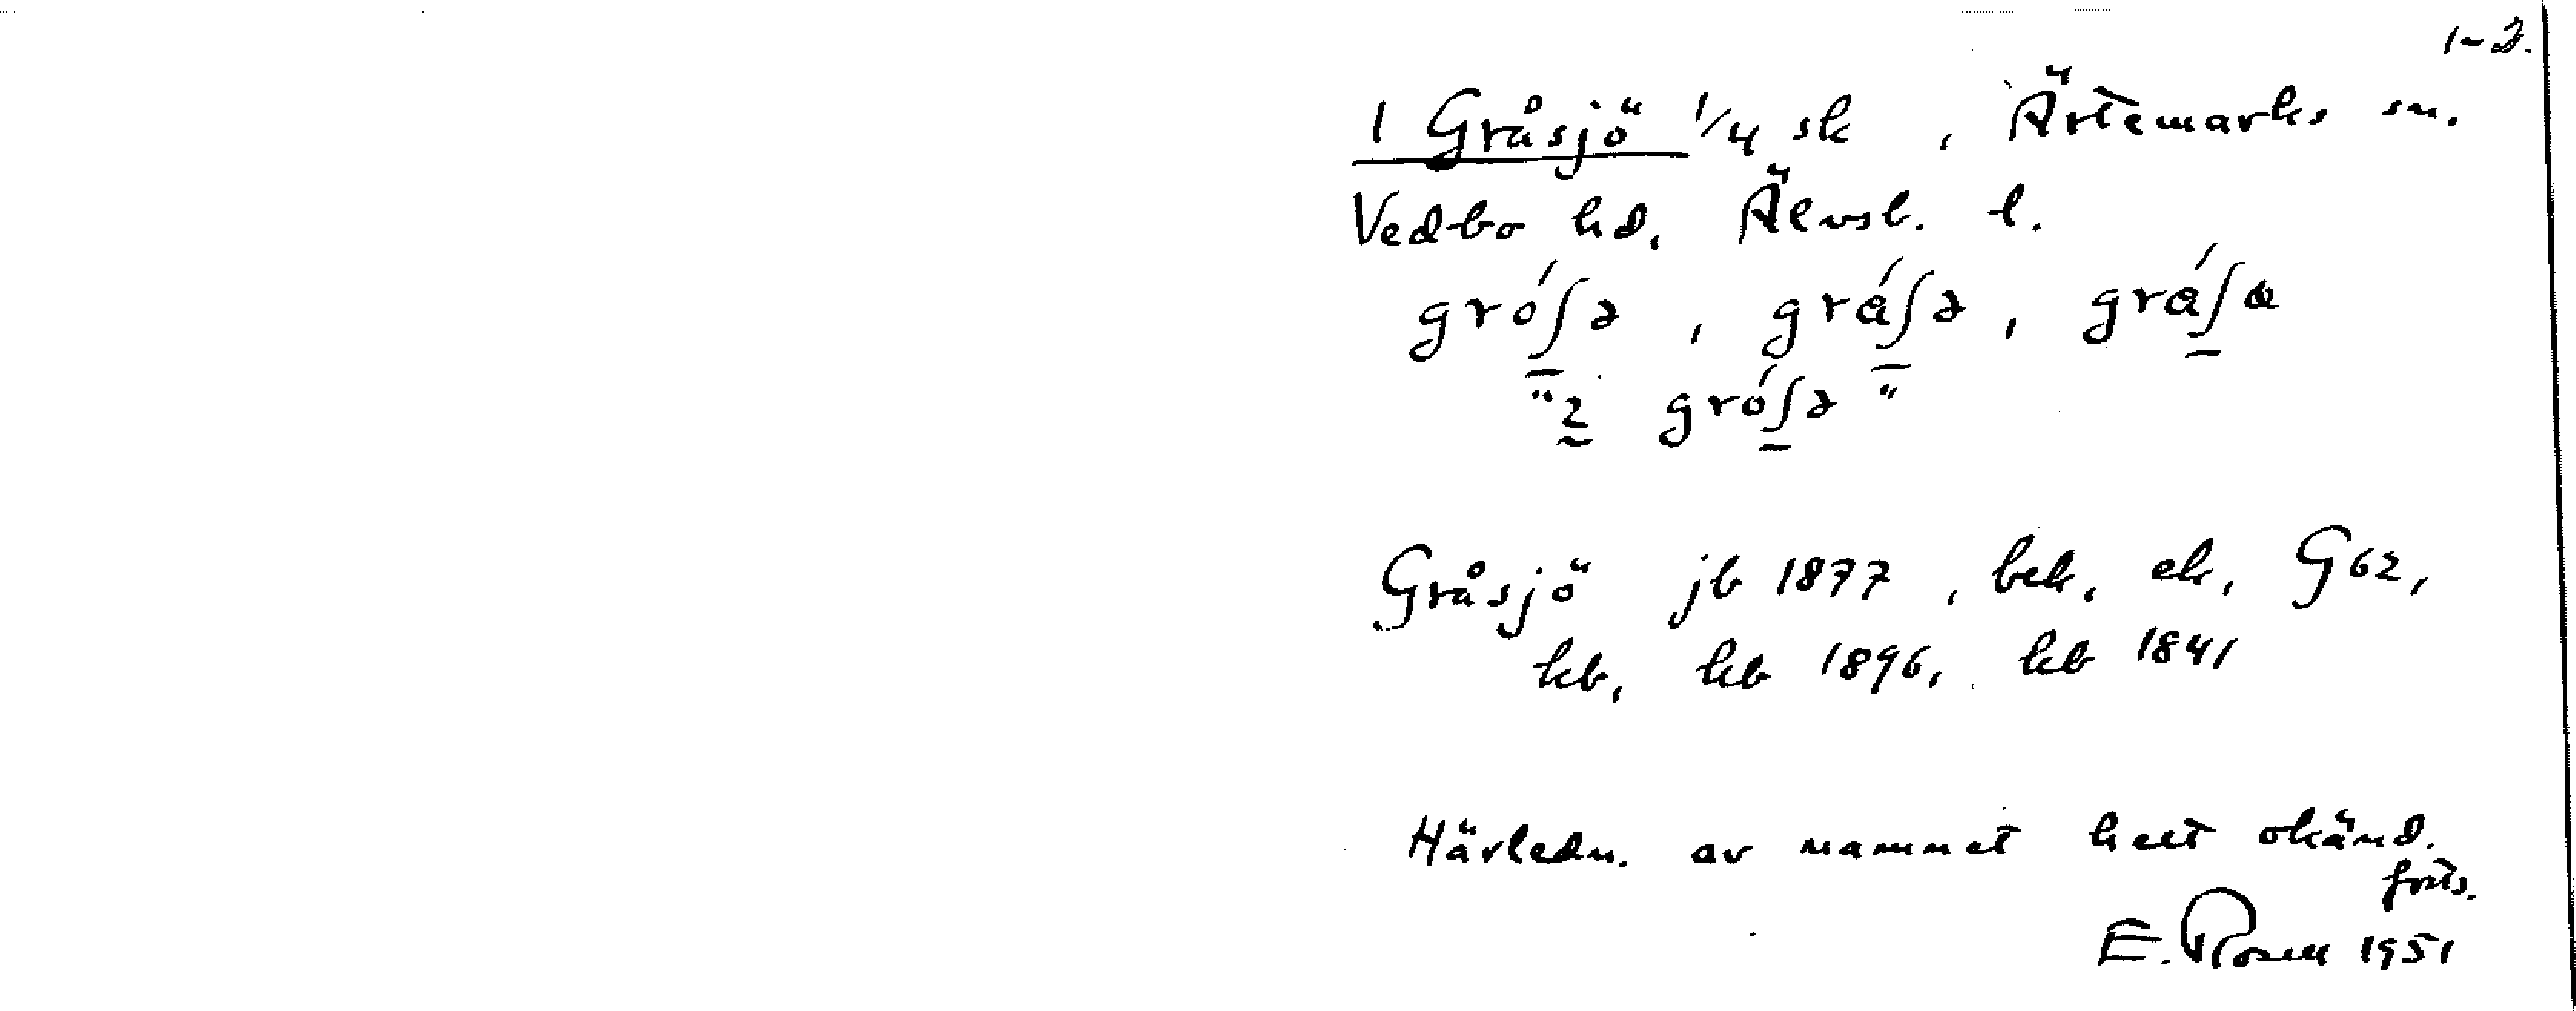 1-2.
1 Gråsjö 1/4 sk, Ärtemarks sn.
Vedbo hd, Älvsb. l.
gró∫ə, grá∫ə, grá∫ɵ
"2 gró∫ə"
Gråsjö jb 1877, bek, ek, G62,
kb, kb 1896, kb 1841
Härledn. av namnet helt okänd.
forts.
E. Rosell 1951